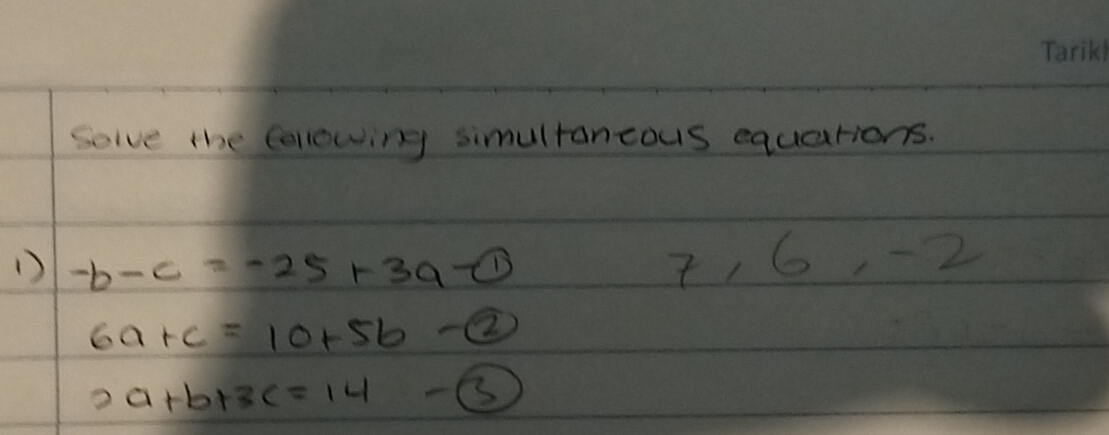 Tarikh
Solve the following simultaneous equations.
1) -b-c = -25+3a -① 7, 6, -2
6a+c = 10+5b -②
2a+b+3c = 14 -③